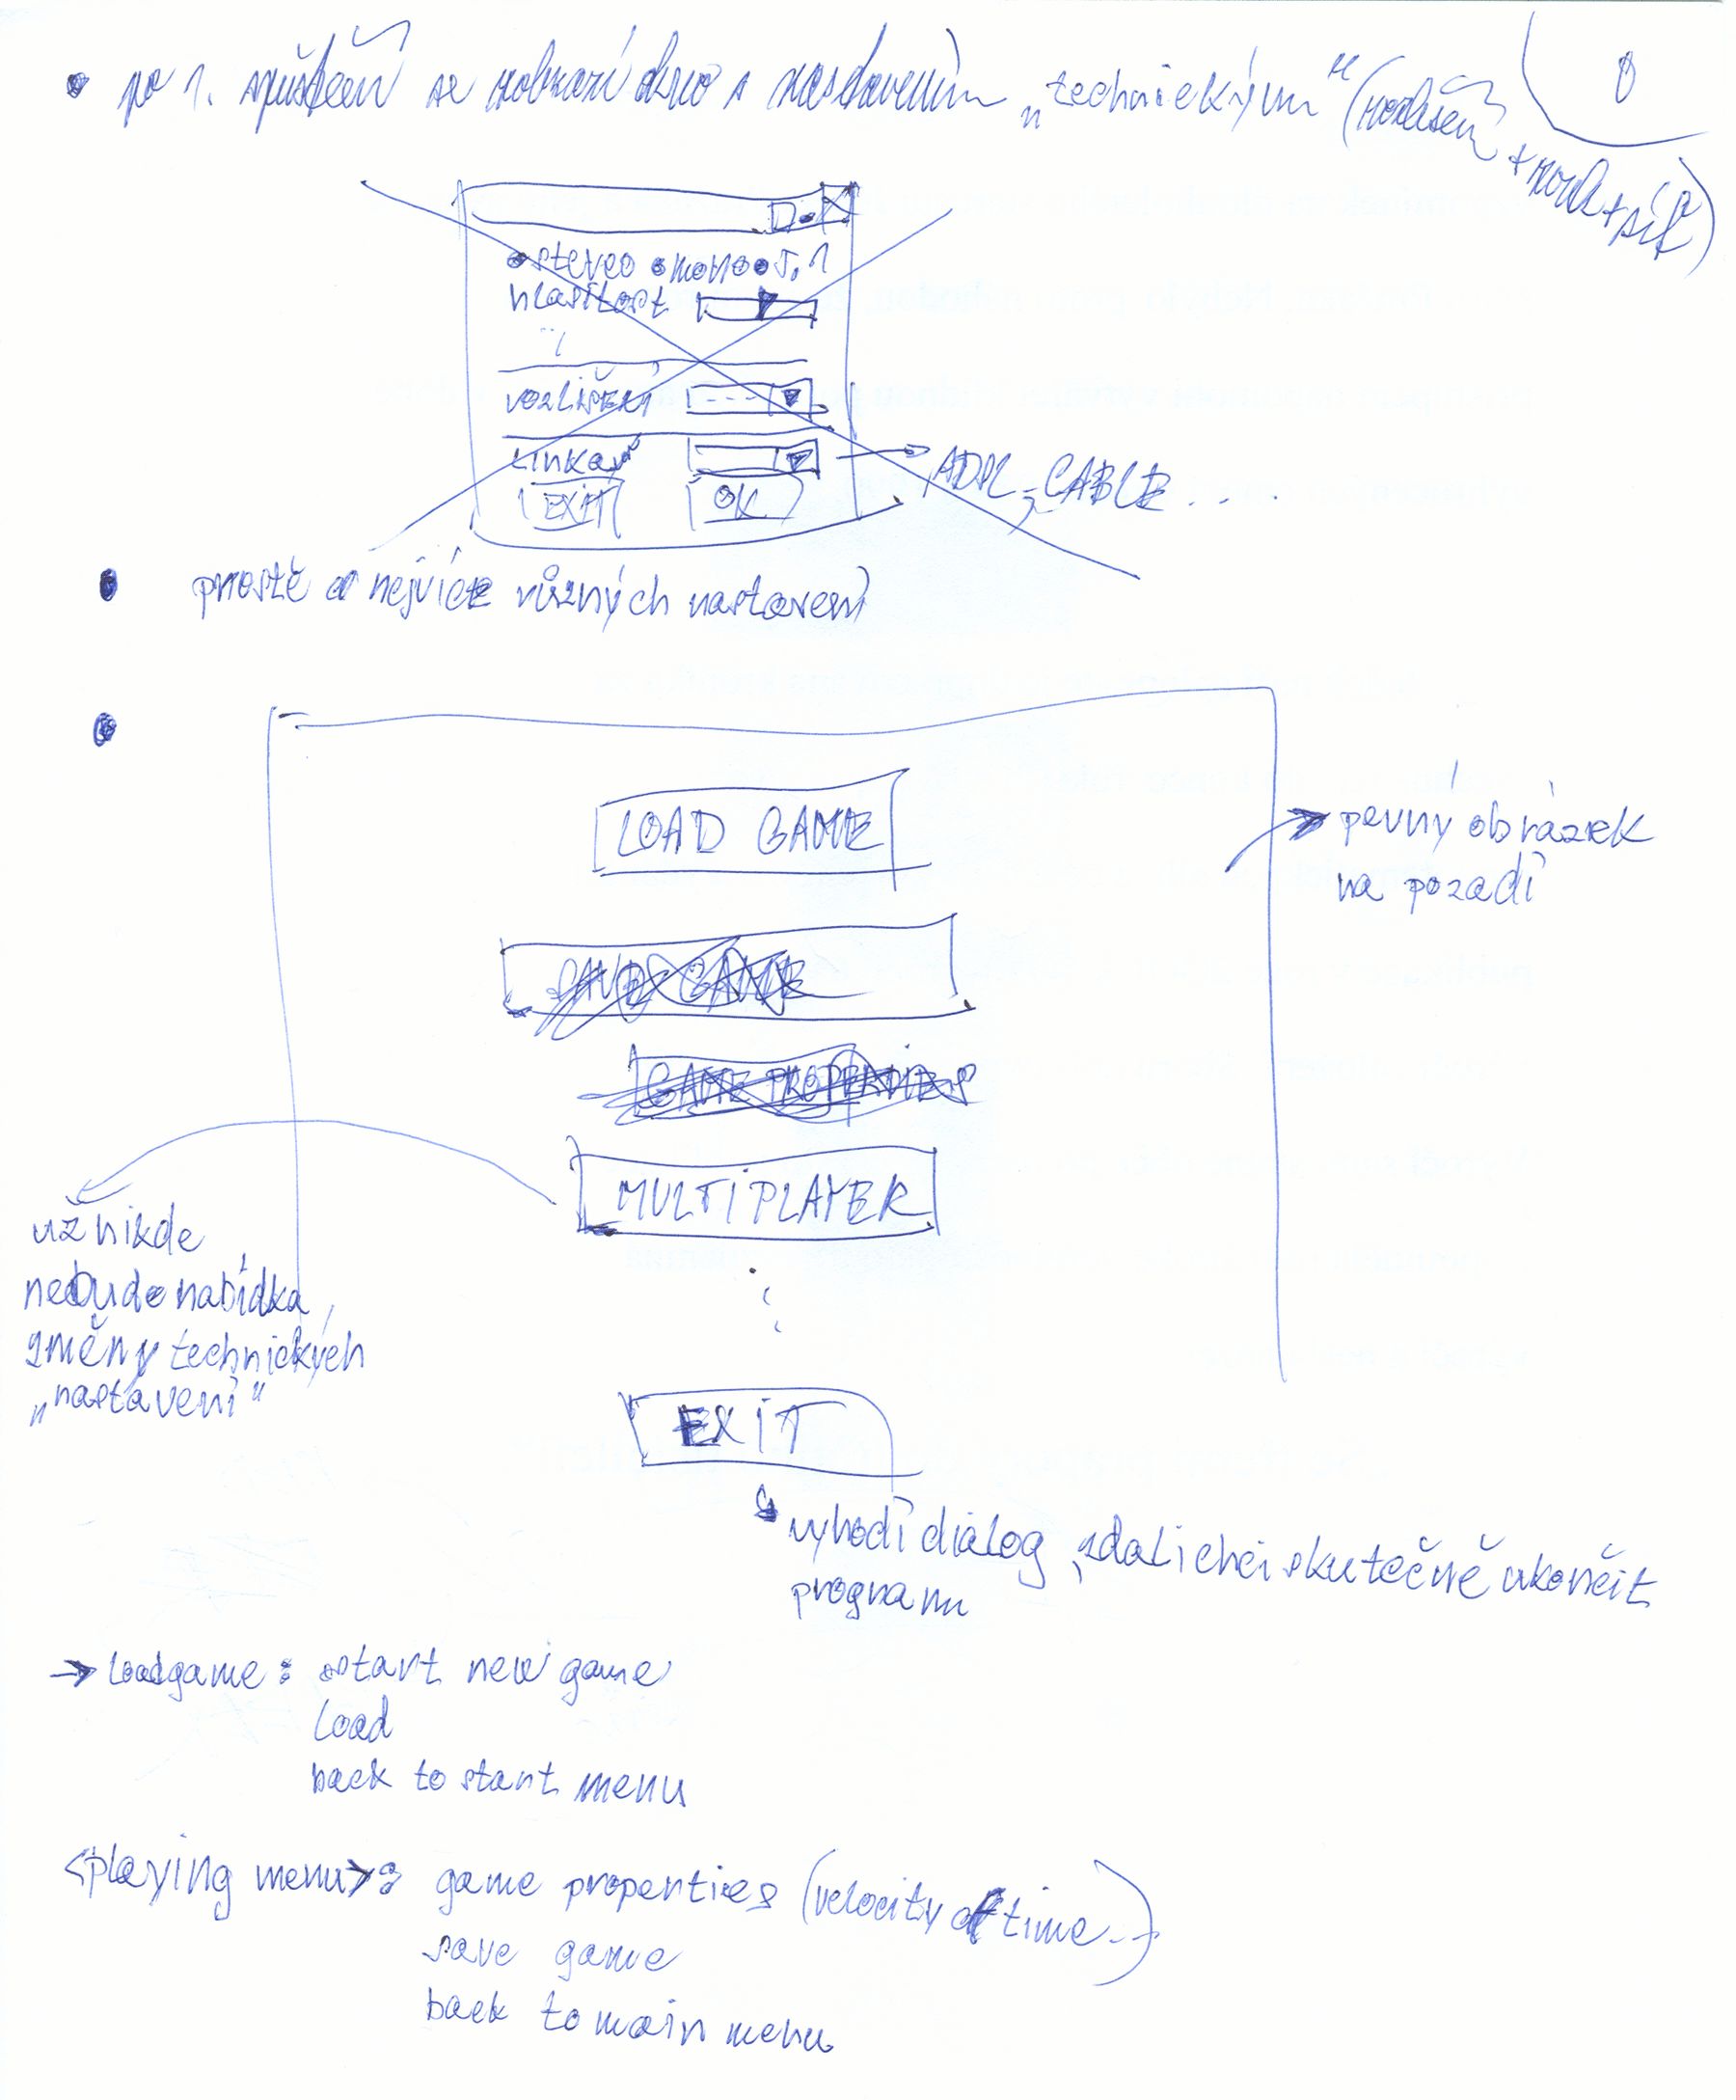 0
• po 1. spuštění se zobrazí okno s nastavením „technickým“ (rozlišení + zvuk + síť)
• stereo • mono • 5.1
hlasitost
rozlišení
linka
→ ADSL, CABLE ...
EXIT OK
• prostě co nejvíce různých nastavení
•
LOAD GAME
→ pevný obrázek
na pozadí
SAVE GAME
GAME PROPERTIES
MULTIPLAYER
už nikde
nebude nabídka
změny technických
„nastavení“
EXIT
vyhodí dialog, zdali chci skutečně ukončit
program
→ Loadgame: start new game
load
back to start menu
<playing menu>: game properties (velocity of time...)
save game
back to main menu